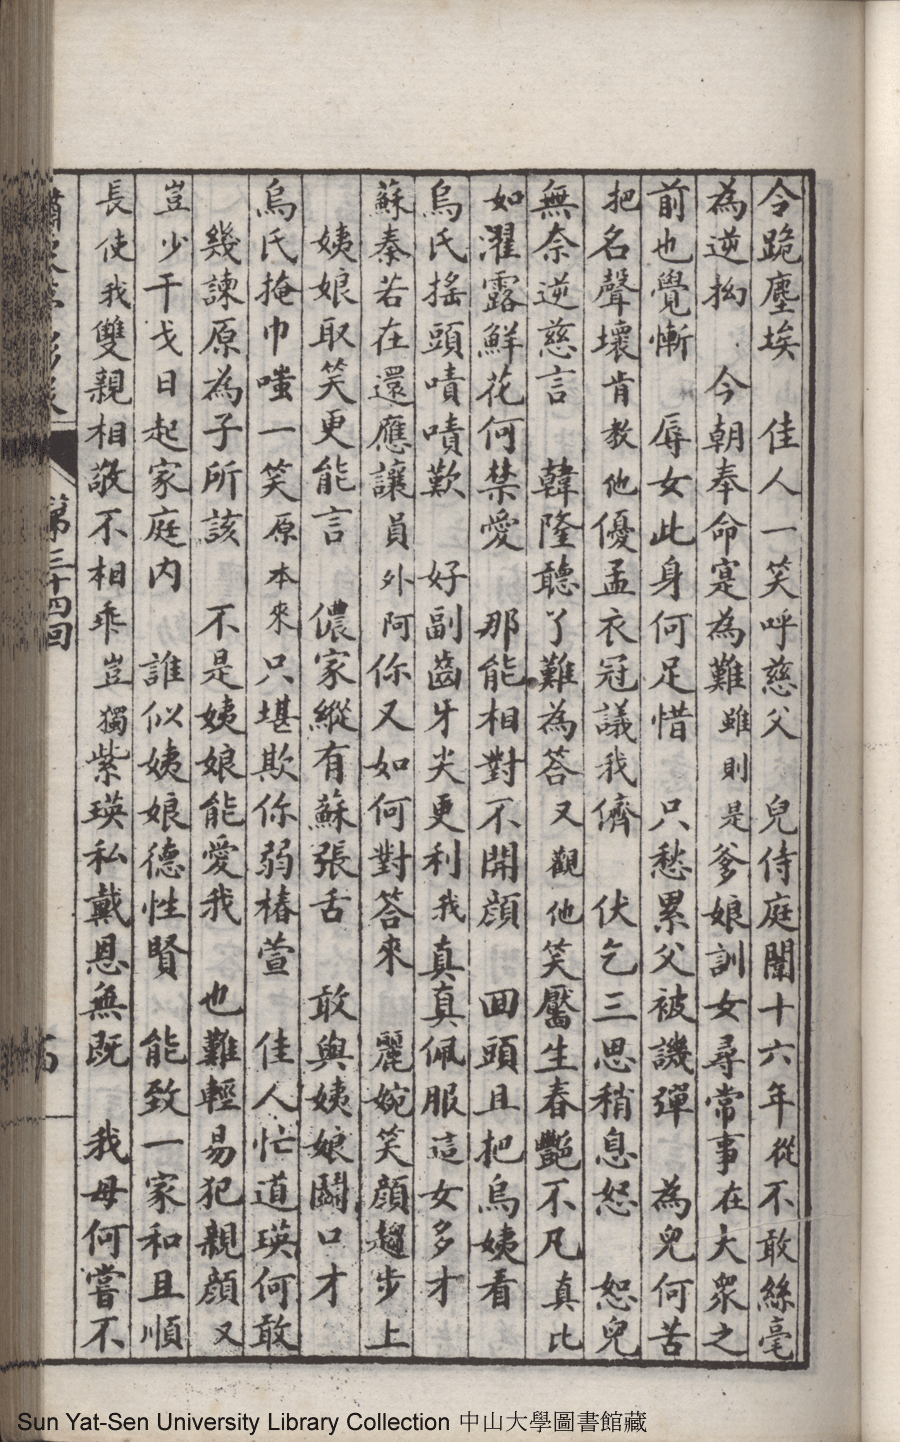 今跪塵埃　佳人一笑呼慈父　兒侍庭闈十六年從不敢絲毫
為逆拗　今朝奉命寔為難雖則是爹娘訓女尋常事在大衆之
前也覺慚　辱女此身何足惜　只愁累父被譏彈　為兒何苦
把名聲壞肯教他優孟衣冠議我儕　伏乞三思稍息怒　恕兒
無奈逆慈言　韓隆聽了難為答又觀他笑靨生春艷不凡真比
如濯露鮮花何禁愛　那能相對不開顏　回頭且把烏姨看
烏氏搖頭嘖嘖歎　好副齒牙尖更利我真真佩服這女多才
蘇秦若在還應讓員外阿你又如何對答來　麗婉笑顏趨步上
姨娘取笑更能言　儂家縱有蘇張舌　敢與姨娘鬪口才
烏氏掩巾嗤一笑原本來只堪欺你弱椿萱　佳人忙道瑛何敢
幾諫原為子所該　不是姨娘能愛我　也難輕易犯親顏又
豈少干戈日起家庭內　誰似姨娘德性賢　能致一家和且順
長使我雙親相敬不相乖豈獨紫瑛私戴恩無既　我母何嘗不
第三十四回
Sun Yat-Sen University Library Collection 中山大學圖書館藏